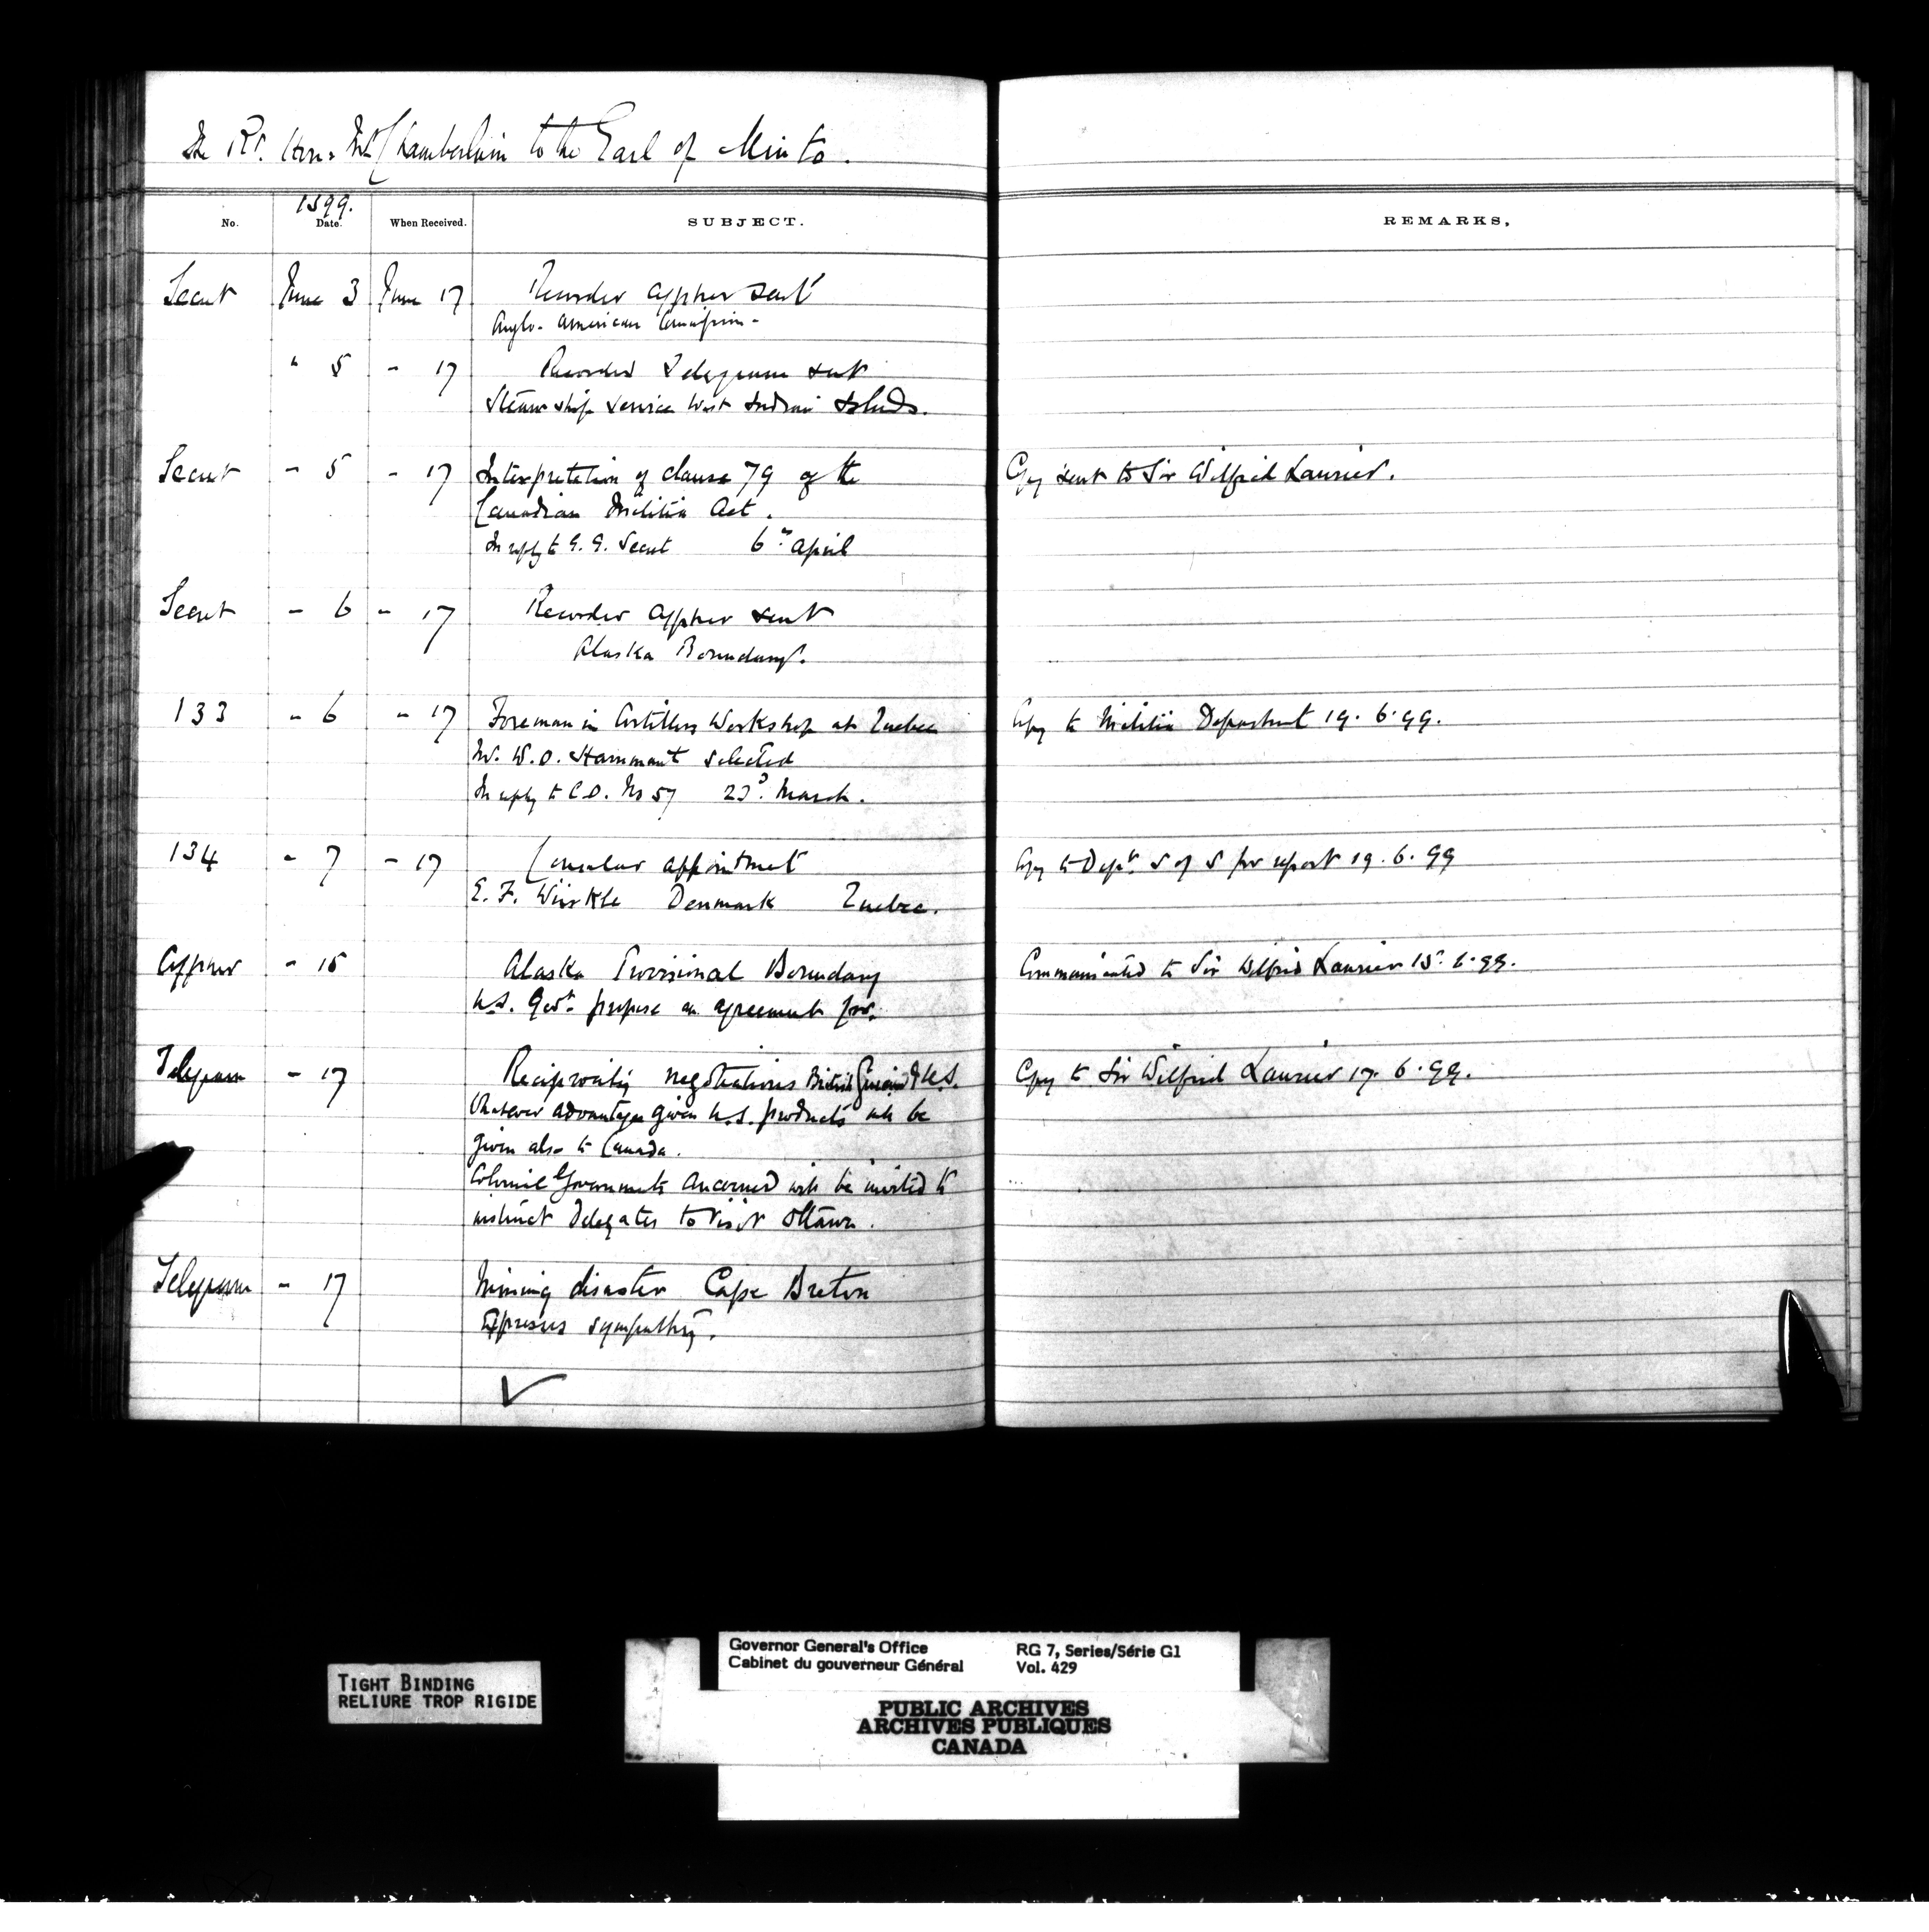 The Rt. Hon. Mr Chamberlain to the Earl of Minto.
1899.
No. Date. When Received. SUBJECT. REMARKS.
Secret June 3 June 17 Recorder cypher sent
Anglo-American Commission -
" 5 - 17 Recorded Telegram sent
Steam ship service West Indian Islands.
Secret - 5 - 17 Interpretation of clause 79 of the Copy sent to Sir Wilfrid Laurier.
Canadian Militia Act.
In reply to G.G. Secret 6th April
Secret - 6 - 17 Recorder cypher sent
Alaska Boundary.
133 - 6 - 17 Foreman in Artillery Workshop at Quebec Copy to Militia Department 19.6.99.
Mr. W.O. Hammant selected
In reply to C.O. No 57 23d. March.
134 - 7 - 17 Consular appointment Copy to Dept. S of S for report 19.6.99
E.F. Würtele Denmark Quebec.
Cypher - 15 Alaska Provisional Boundary Communicated to Sir Wilfrid Laurier 15.6.99.
U.S. Govt. propose an agreement for.
Telegram - 17 Reciprocity negotiations British Guiana & U.S. Copy to Sir Wilfrid Laurier 17.6.99.
Whatever advantages given U.S. products will be
given also to Canada.
Colonial Governments concerned will be invited to
instruct Delegates to visit Ottawa.
Telegram - 17 Mining disaster Cape Breton
Expresses sympathy.
TIGHT BINDING
RELIURE TROP RIGIDE
Governor General's Office RG 7, Series/Série G1
Cabinet du gouverneur Général Vol. 429
PUBLIC ARCHIVES
ARCHIVES PUBLIQUES
CANADA